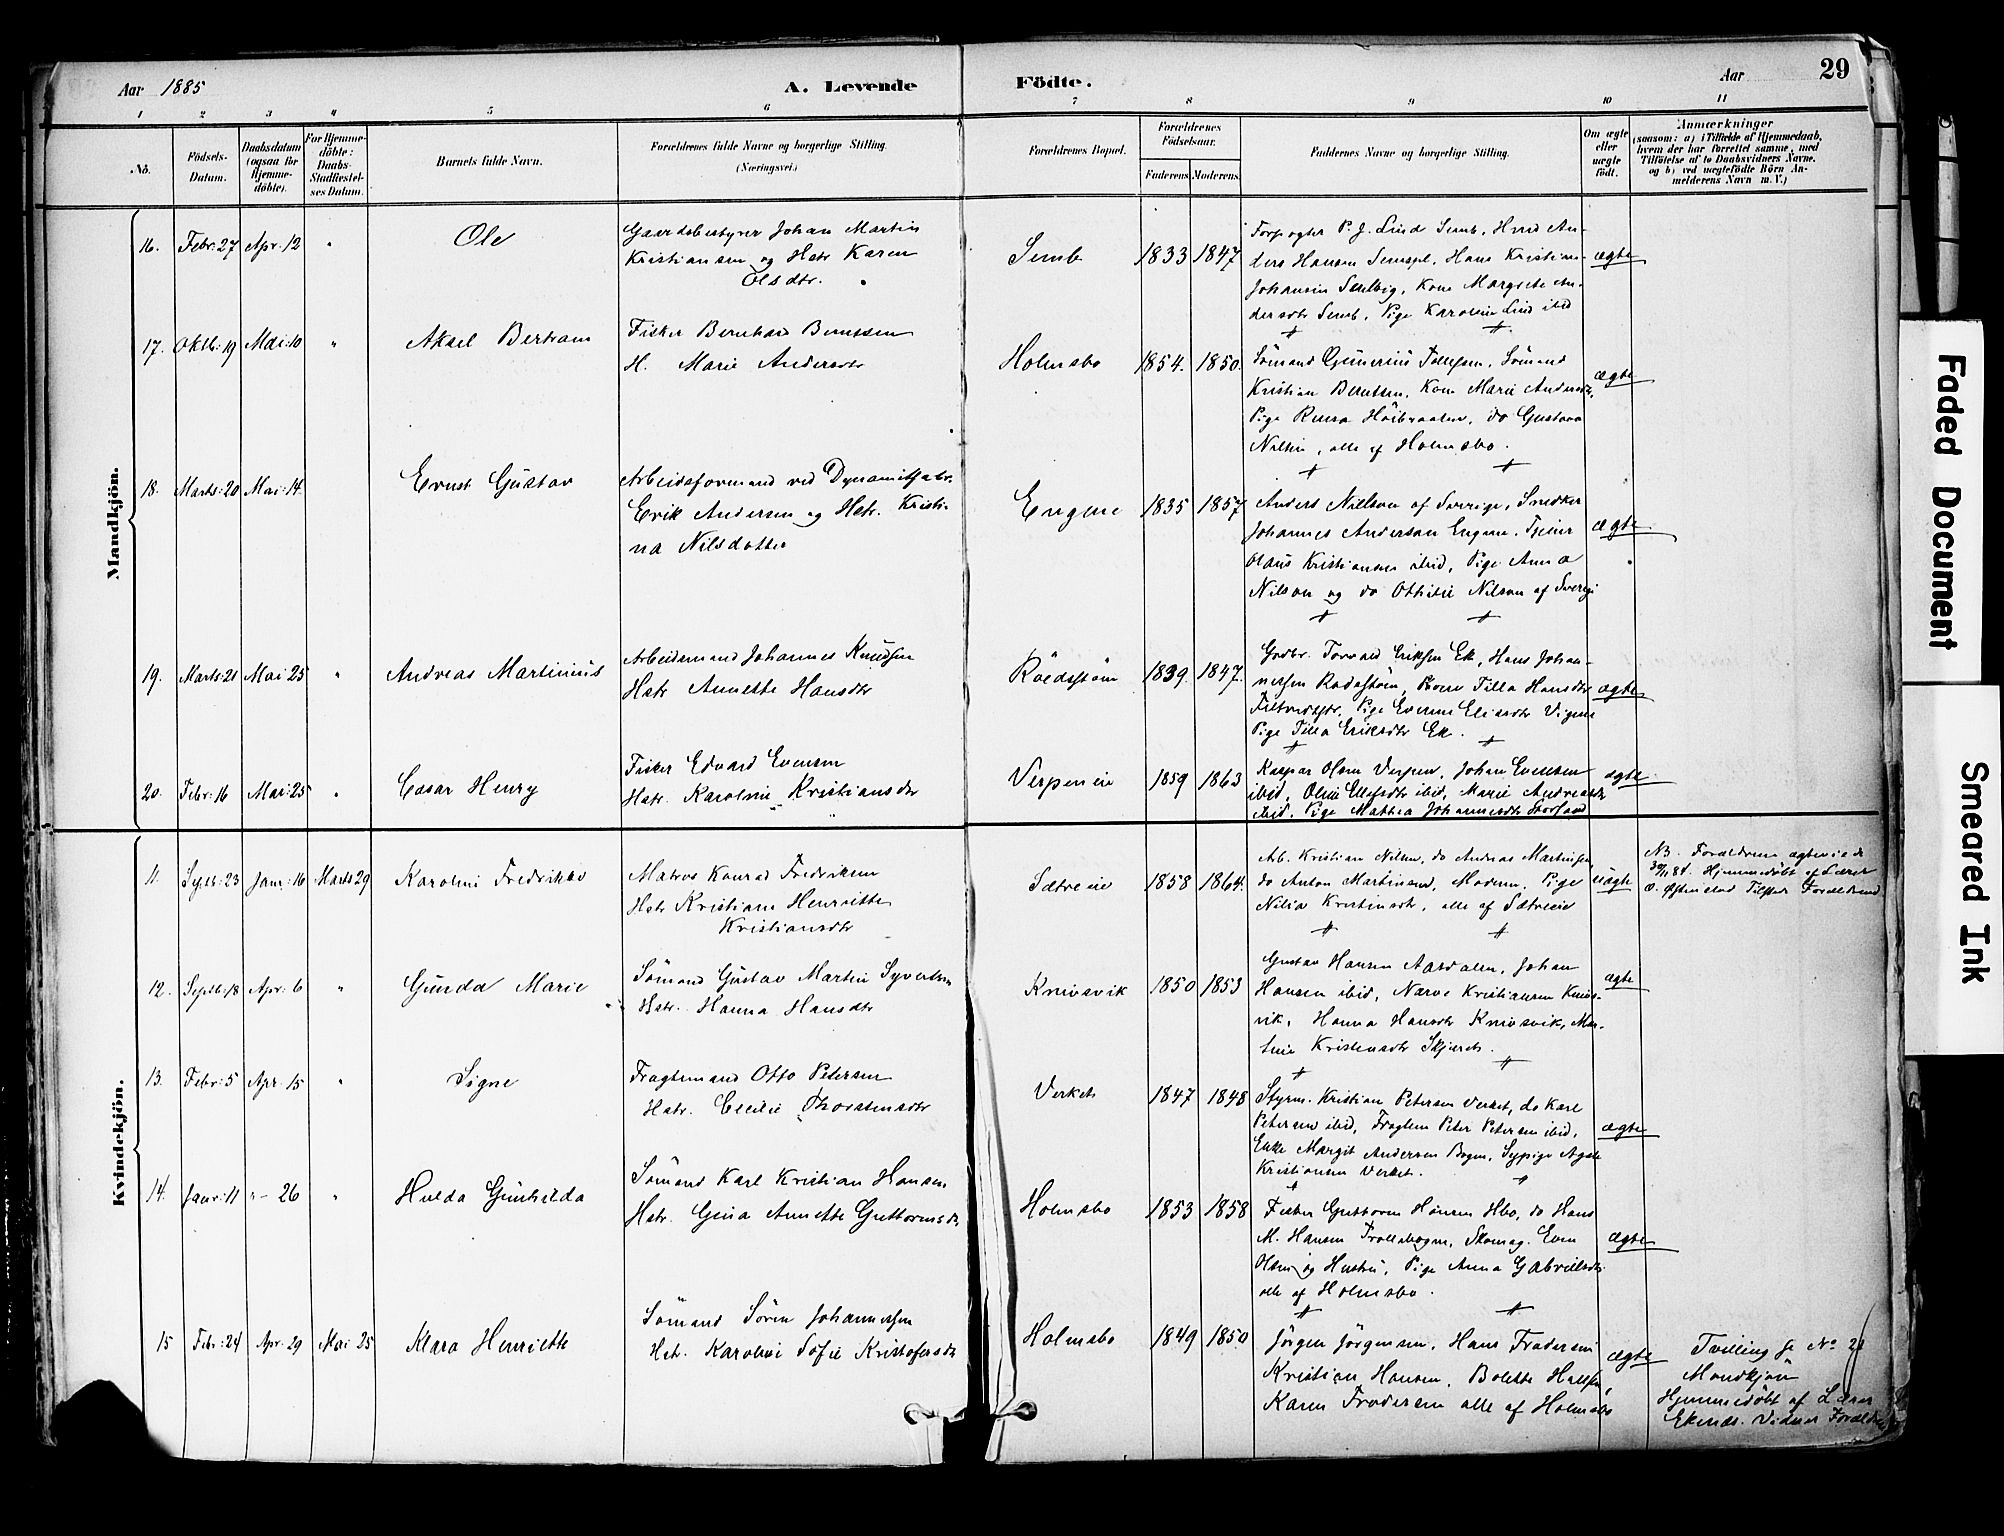 Aar 1885
A. Levende
Födte.
Aar
29
1 2 3 4 5 6 7 8 9 10 11
No.
Födsels-
Datum.
Daabsdatum
(ogsaa for
Hjemme-
döbte).
For Hjemme-
döbte:
Daabs-
Stadfæstel-
ses Datum.
Barnets fulde Navn.
Forældrenes fulde Navne og borgerlige Stilling.
(Næringsvei.)
Forældrenes Bopæl.
Forældrenes
Födselsaar.
Faderens Moderens
Faddernes Navne og borgerlige Stilling.
Om ægte
eller
uægte
födt.
Anmærkninger
(saasom: a) i Tilfælde af Hjemmedaab,
hvem der har forrettet samme, med
Tilföielse af to Daabsvidners Navne,
og b) ved uægtefödte Börn An-
melderens Navn m. V.)
Mandkjön.
16. Febr: 27 Apr: 12 " Ole
Gaardsbestyrer Johan Martin
Kristiansen og Hstr Karen
Olsdtr.
Semb 1833 1847
Forpagter P. J. Lind Semb, An-
ders Hansen Hans Kristian
Johansen Kone Margrete An-
dersdtr Semb, Pige Karoline Lind ibid
ægte
17. Oktb: 19 Mai: 10 " Aksel Bertram
Fisker Bernhard Berntsen
H. Marie Andersdtr
Holmsbo 1854. 1850.
Sömand Gunerius Tollefsen, Sömand
Kristian Berntsen, Kone Marie Andersdtr,
Pige Höibraaten, do Gustava
Nilsen, alle af Holmsbo.
ægte
18. Marts: 20 Mai: 14. Ernst Gustav
Arbeidsformand ved Dynamitfabr.
Erik Andersen og Hstr. Kristi-
na Nilsdotter
Engene 1835 1857
Anders Nielson af Sverige, Snedker
Johannes Anderson Engene, Tjener
Olaus Kristiansen ibid, Pige Anna
Nilson og do Othilie Nilson af Sverige
ægte
19. Marts: 21 Mai 25 " Andreas Martinius
Arbeidsmand Johannes Knudsen
Hstr Annette Hansdtr
1839. 1847.
Grdbr. Torvald Eriksen Ek, Hans Johan-
nessen Kone Tilla Hansdtr
Pige Evenne Elisdtr
Pige Tilla Eriksdtr Ek.
ægte
20. Febr: 16 Mai: 25 " Cæsar Henry
Fisker Edvard Evensen
Hstr. Karoline Kristiansdtr
Verpeneie 1859 1863
Kaspar Olsen Verpen, Johan Evensen
ibid, Oline Ellefsdtr ibid, Marie Andreasdtr
ibid, Pige Mathea Johannesdtr Storsand
ægte
Kvindekjön.
11. Septb: 23 Janr: 16 Marts 29 Karoline Fredrikke
Matros Konrad Fredriksen
Hstr Kristiane Henriette
Kristiansdtr
Sætreeie 1858 1864.
Arb. Kristian Nilsen, do Andreas Martinsen,
do Anton Martinsen, Moderen, Pige
Nilia Kristinsdtr, alle af Sætreeie
uægte
NB. Forældrene ægteviede
Hjemmedöbt af Lærer
Forældrene
12. Septb: 18 Apr: 6 " Gunda Marie
Sömand Gustav Martin Syvertsen
Hstr. Hanna Hansdtr
Knivsvik 1850 1853
Gustav Hansen Aasdalen, Johan
Hansen ibid, Narve Kristiansen Knivs-
vik, Hanna Hansdtr Knivsvik, Mar-
tine Kristensdtr
ægte
13. Febr: 5 Apr: 15 " Signe
Fragtemand Otto Petersen
Hstr. Cecilie Thorstensdtr
Verket 1847 1848
Styrm. Kristian Petersen Verket, do Karl
Petersen ibid, Fragtem Peter Petersen ibid,
Enke Margit Andersen Bogen, Sypige Agate
Kristiansen Verket.
ægte
14. Janr: 11 " - 26 " Hulda Gunhilda
Sömand Karl Kristian Hansen
Hstr. Gina Annette Guttormsdtr
Holmsbo 1853 1858
Fisker Guttorm Hansen Hbo, do Hans
M. Hansen Trollebogen, Skomag. Even
Olsen og Hustru, Pige Anna Gabrielsdtr
alle af Holmsbo.
ægte
15 Febr: 24 Apr: 29 Mai: 25 Klara Henriette
Sömand Sören Johannessen
Hstr. Karoline Sofie Kristofersdtr
Holmsbo 1849 1850
Jörgen Jörgensen, Hans Fredersen
Kristian Hansen, Bolette
Karen Fredersen alle af Holmsbo
ægte
Tvilling se No 21
Mandkjön
Hjemmedöbt af Lærer
Ekenæs. Vidner Forældre
Faded Document
Smeared Ink